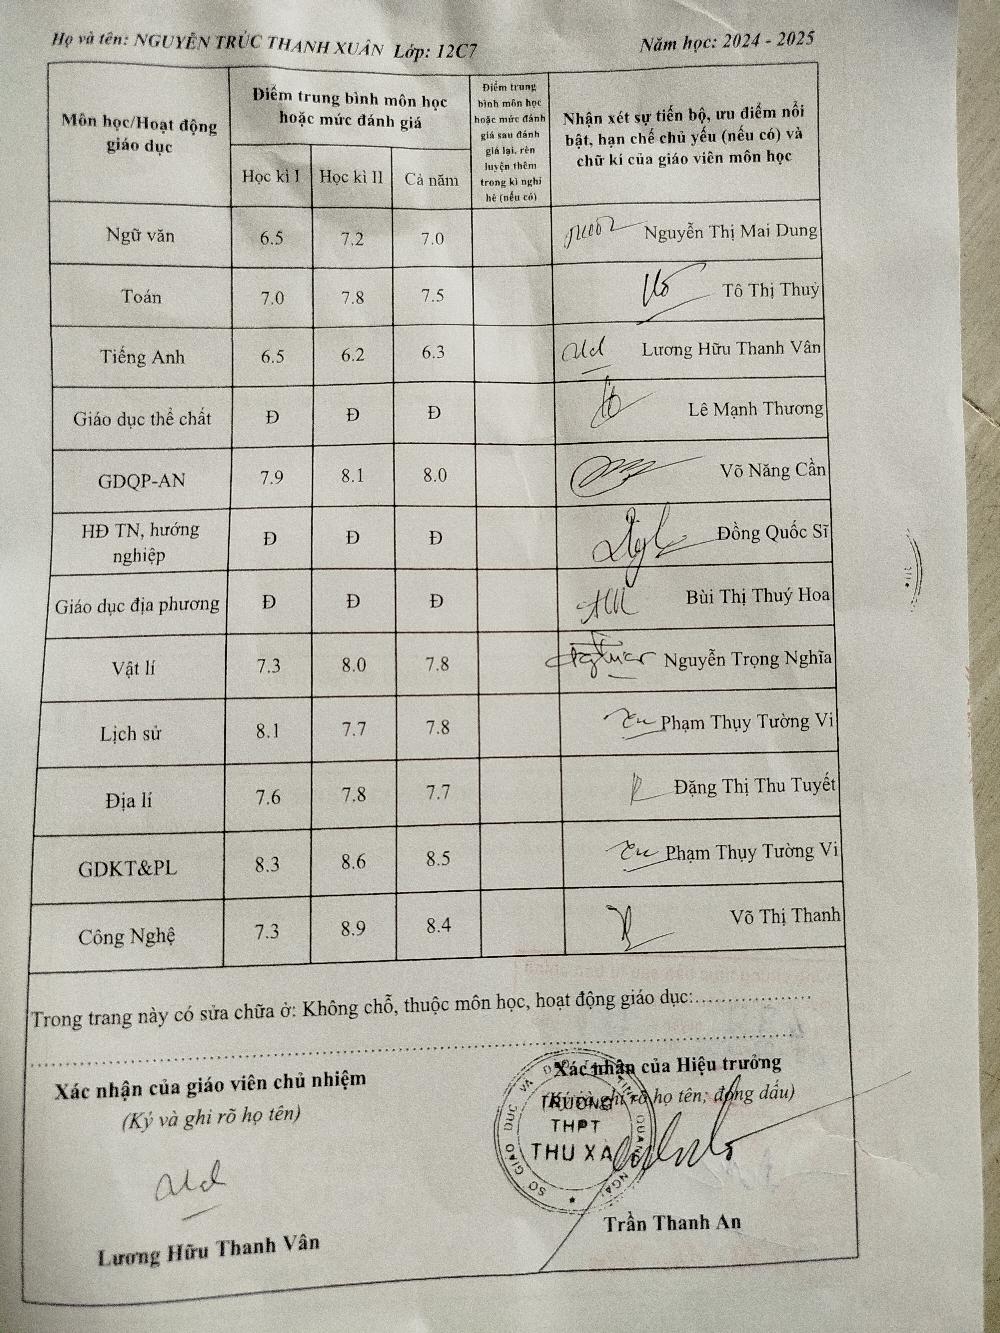 Họ và tên: NGUYỄN TRÚC THANH XUÂN Lớp: 12C7
Năm học: 2024 - 2025
Môn học/Hoạt động giáo dục
Điểm trung bình môn học hoặc mức đánh giá
Học kì I Học kì II Cả năm
Điểm trung
bình môn học
hoặc mức đánh
giá sau đánh
giá lại, rèn
luyện thêm
trong kì nghỉ
hè (nếu có)
Nhận xét sự tiến bộ, ưu điểm nổi
bật, hạn chế chủ yếu (nếu có) và
chữ kí của giáo viên môn học
Ngữ văn 6.5 7.2 7.0 Nguyễn Thị Mai Dung
Toán 7.0 7.8 7.5 Tô Thị Thuỷ
Tiếng Anh 6.5 6.2 6.3 Lương Hữu Thanh Vân
Giáo dục thể chất Đ Đ Đ Lê Mạnh Thương
GDQP-AN 7.9 8.1 8.0 Võ Năng Cần
HĐ TN, hướng
nghiệp Đ Đ Đ Đồng Quốc Sĩ
Giáo dục địa phương Đ Đ Đ Bùi Thị Thuý Hoa
Vật lí 7.3 8.0 7.8 Nguyễn Trọng Nghĩa
Lịch sử 8.1 7.7 7.8 Phạm Thụy Tường Vi
Địa lí 7.6 7.8 7.7 Đặng Thị Thu Tuyết
GDKT&PL 8.3 8.6 8.5 Phạm Thụy Tường Vi
Công Nghệ 7.3 8.9 8.4 Võ Thị Thanh
Trong trang này có sửa chữa ở: Không chỗ, thuộc môn học, hoạt động giáo dục:
Xác nhận của giáo viên chủ nhiệm
(Ký và ghi rõ họ tên)
Lương Hữu Thanh Vân
Xác nhận của Hiệu trưởng
(Ký và ghi rõ họ tên, đóng dấu)
TRƯỜNG
THPT
THU XÀ
Trần Thanh An